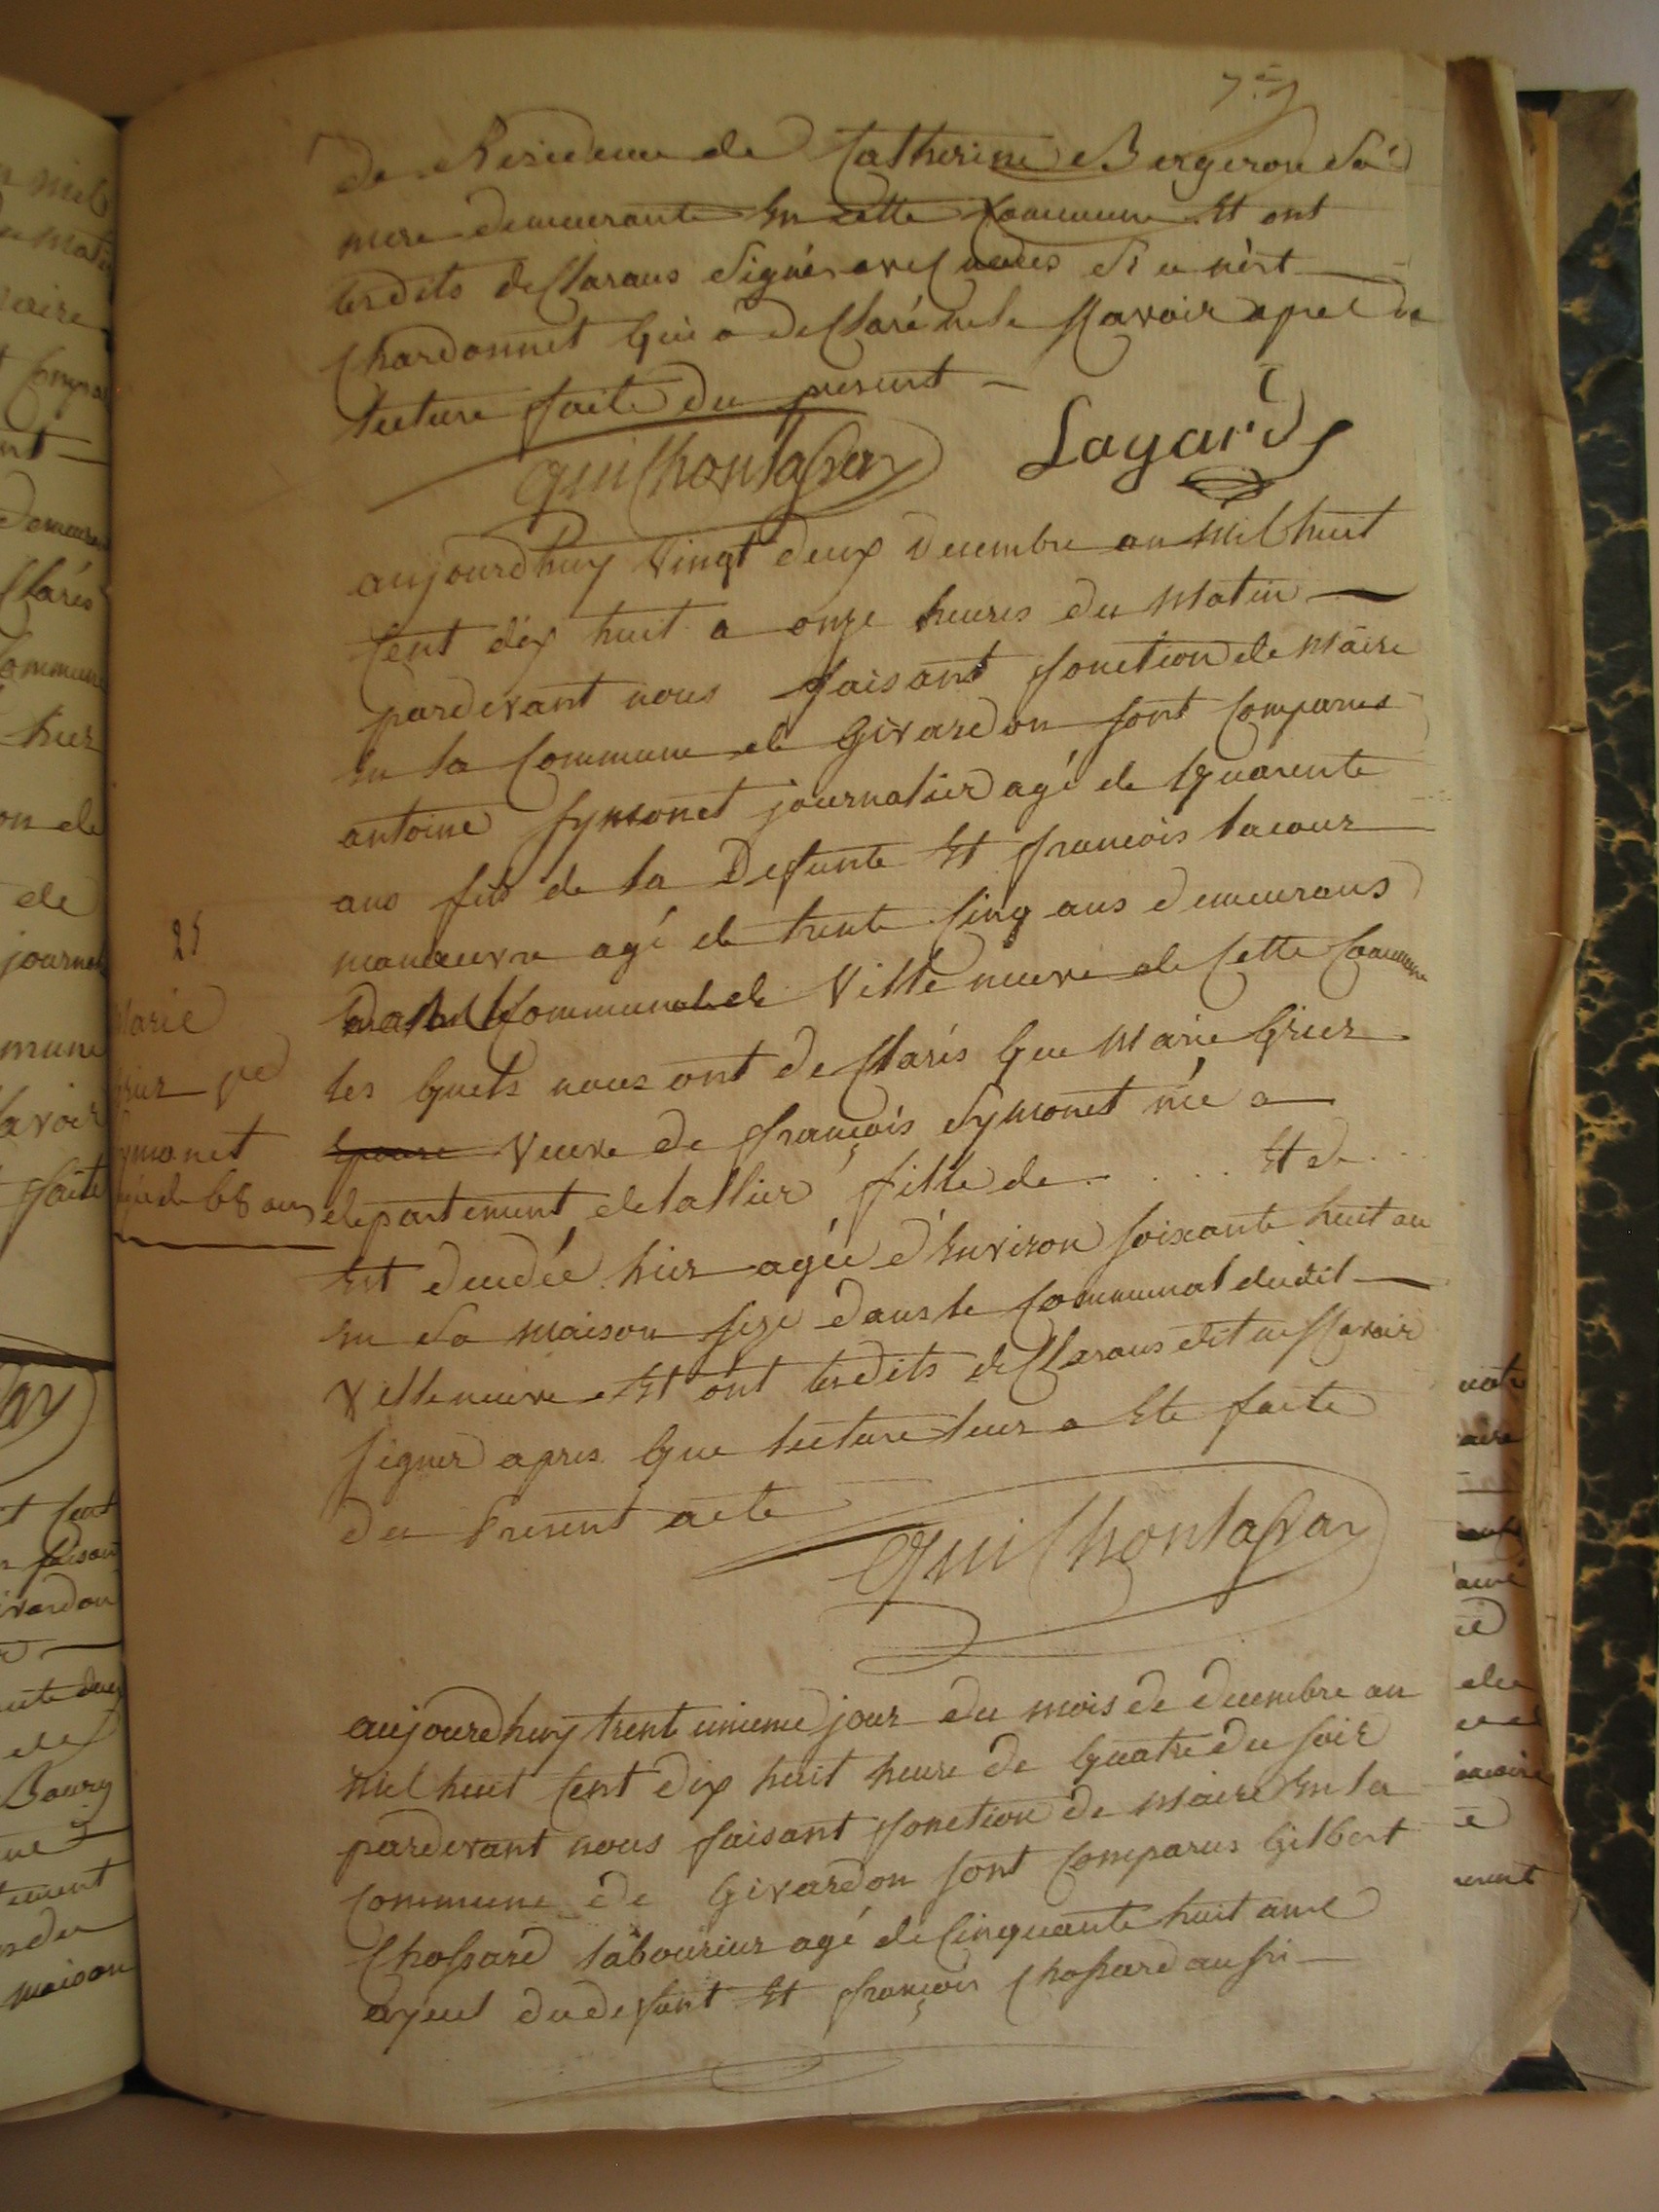 de Residence de Catherine Bergeron sa
mere demeurante En cette Commune Et ont
lesdits desclarans Signés avec nous si ce n'est
Chardonnet qui a desclaré ne le scavoir apres
lecture faite du present
Guichontapar Lagarde
aujourdhuy Vingt deux decembre an mil huit
Cent dix huit a onze heures du Matin
pardevant nous faisant fonction de Maire
En la Commune de Girardon sont Comparus
antoine Symonet journalier agé de quarente
ans fils de la Defunte Et francois lacour
manœuvre agé de trente Cinq ans demeurans
Communal de Ville neuve de Cette Commune
les quels nous ont desclarés que Marie Grier
Epouse Veuve de françois Symonet née a
departement de lallier fille de . . . . Et de . . .
Est decedée hier agée d'Environ soixante huit an
En sa maison size dans le Communal dudit
Villeneuve Et ont lesdits desclarans dit ne scavoir
signer apres que lecture leur a Ete faite
du Present acte
Guichontapar
25
Marie
Grier
Symonet
agée de 68 ans
aujourdhuy trente unieme jour du mois de decembre an
Mil huit Cent dix huit heure de quatre du soir
pardevant nous faisant fonction de Maire En la
Commune de Girardon sont Comparus Gilbert
Chossard laboureur agé de Cinquante huit ans
ayeul du defunt Et françois Chossard aussi